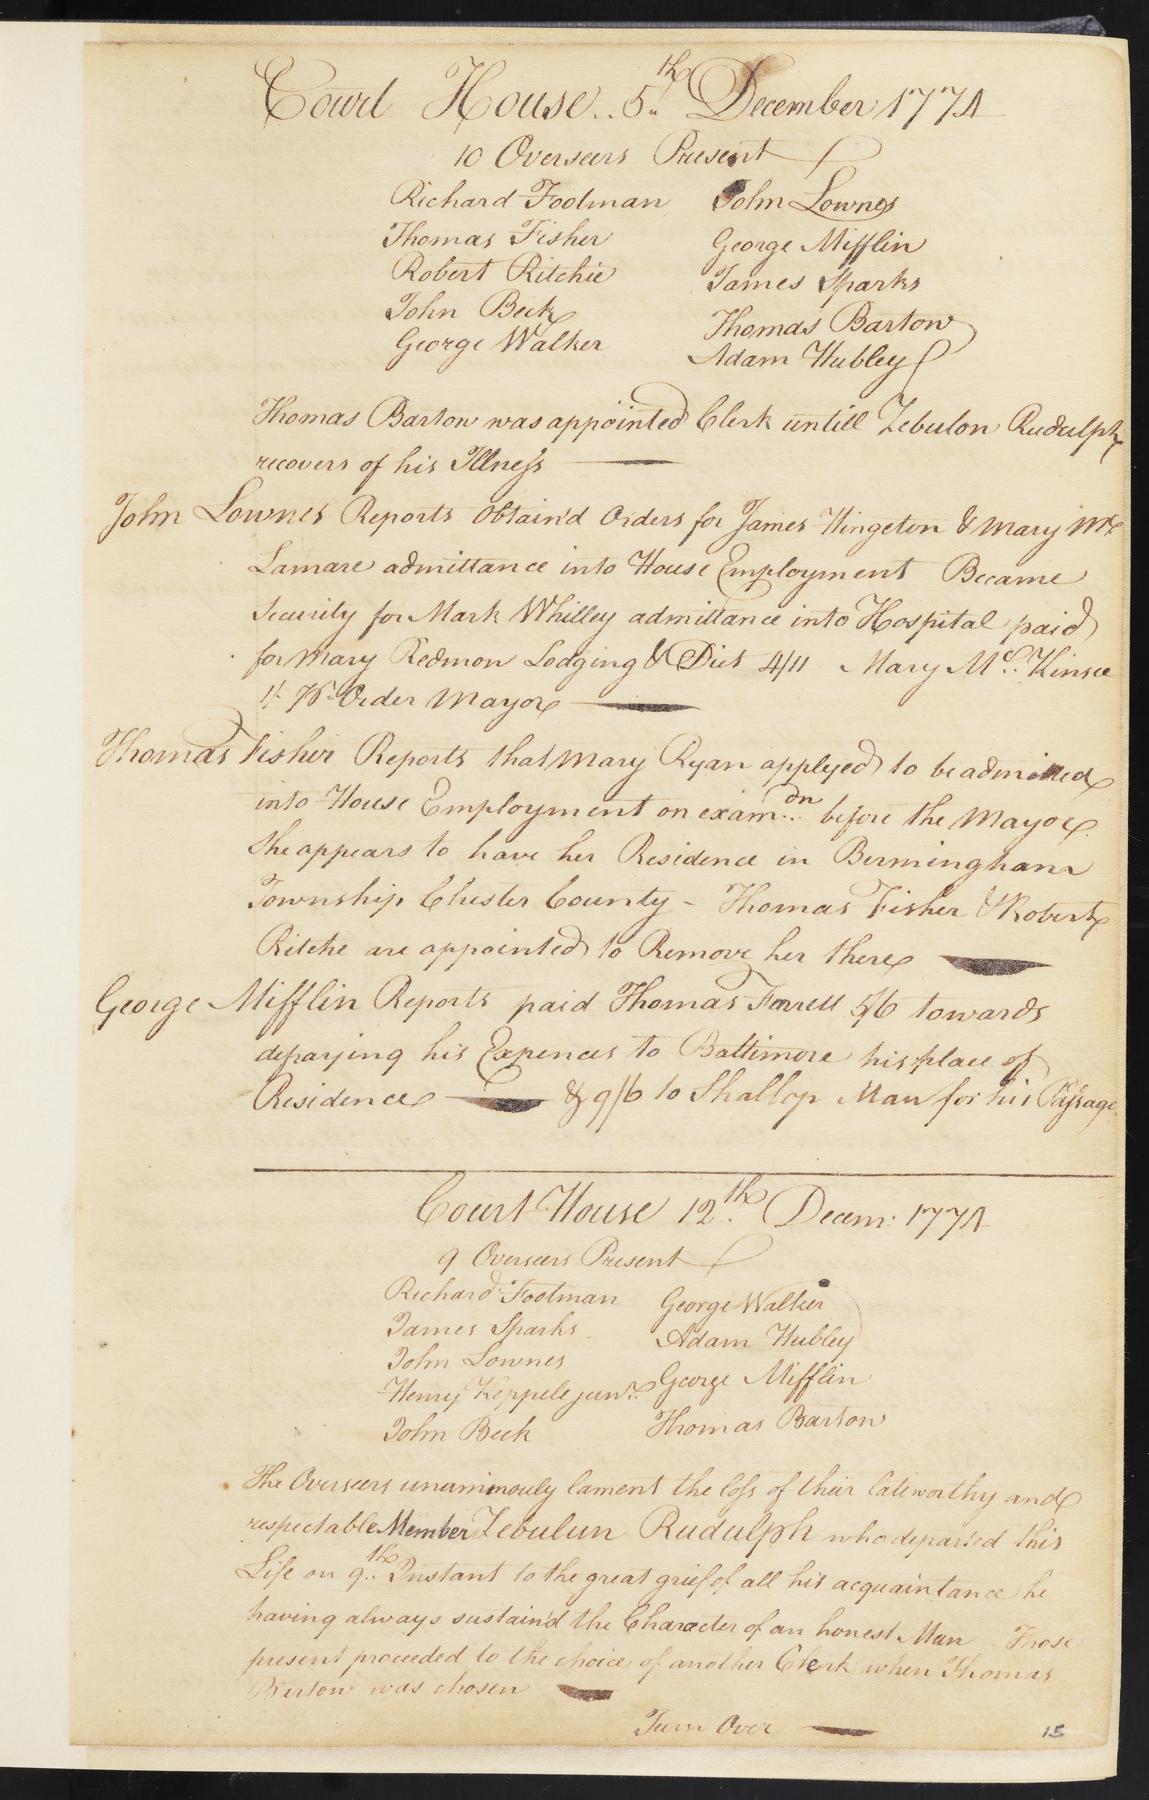 Court House.. 5th December 1774
10 Overseers Present
Richard Footman John Lownes
Thomas Fisher George Mifflin
Robert Ritchie James Sparks
John Beck Thomas Barton
George Walker Adam Hubley
Thomas Barton was appointed Clerk untill Zebulon Rudulph
recovers of his Illness
John Lownes Reports Obtain'd Orders for James Hingeton & Mary Mc
Lamare admittance into House Employment Became
Security for Mark Whilley admittance into Hospital paid
for Mary Redmon Lodging & Diet 4/11 Mary Mc. Kinsee
Order Mayor
Thomas Fisher Reports that Mary Ryan applyed to be admitted
into House Employment on exam..on before the Mayor
She appears to have her Residence in Birmingham
Township Chester County - Thomas Fisher & Robert
Ritche are appointed to Remove her there
George Mifflin Reports paid Thomas Farrell 5/6 towards
defraying his Expences to Baltimore his place of
Residence & 9/6 to Shallop Man for his Passage
Court House 12th. Decem: 1774
9 Overseers Present
Richard Footman George Walker
James Sparks Adam Hubley
John Lownes George Mifflin
Henry Keppele junr. Thomas Barton
John Beck
The Overseers unanimously lament the loss of their late worthy and
respectable Member Zebulun Rudulph who departed this
Life on 9th. Instant to the great grief of all his acquaintance he
having always sustain'd the Character of an honest Man Those
present proceeded to the choice of another Clerk when Thomas
Barton was chosen
Turn Over
15